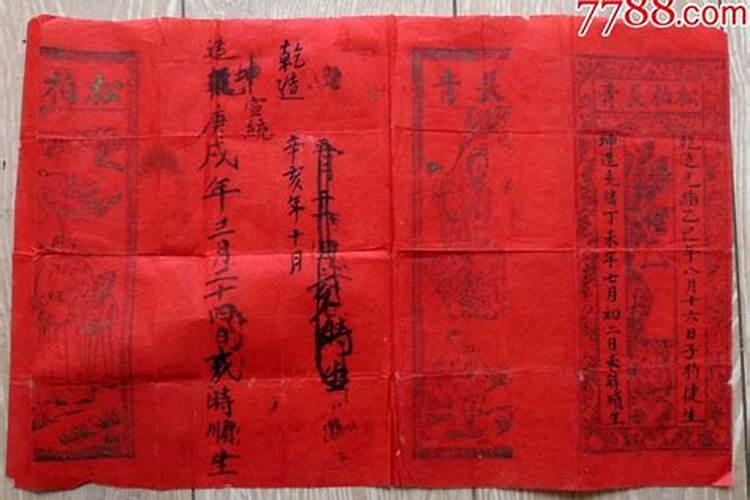 7788.com
松柏長青
乾造光緒乙巳年八月十六日子時健生
坤造光緒丁未年七月初二日未時順生
長青
時生
乾造
辛亥年十月
坤宣統
造庚戌年三月二十四日亥時順生
松柏